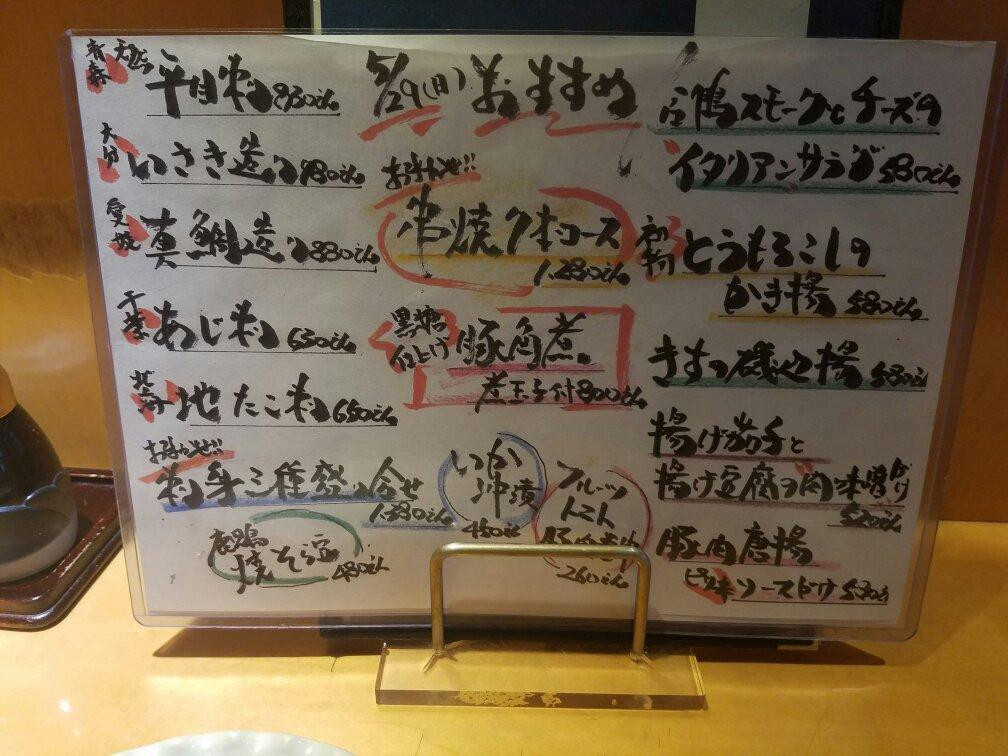 青森 天然 平目刺 830えん
大分 いさき造り 780えん
愛媛 真鯛造り 880えん
千葉 あじ刺 650えん
北海 地たこ刺 650えん
おまかせ!!
刺身三種盛り合せ 1,380えん
鹿児島
焼そら豆 480えん
5/29(月) おすすめ
おまかせ!!
串焼7本コース
1,280えん
黒糖
仕上げ 豚角煮
煮玉子付 800えん
いか
沖漬
450えん
フルーツ
トマト
260えん
合鴨スモークとチーズの
イタリアンサラダ 580えん
初物 とうもろこしの
かき揚 580えん
きすの磯辺揚 580えん
揚げ茄子と
揚げ豆腐の肉味噌がけ
520えん
豚肉唐揚
ピリ辛ソースがけ 530えん